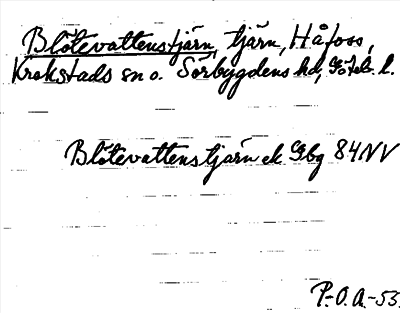 Blötevattenstjärn, tjärn, Håfoss,
Krokstads sn o. Sörbygdens hd, Göteb. l.
Blötevattenstjärn ek Gbg 84NV
P.O.A.-53.